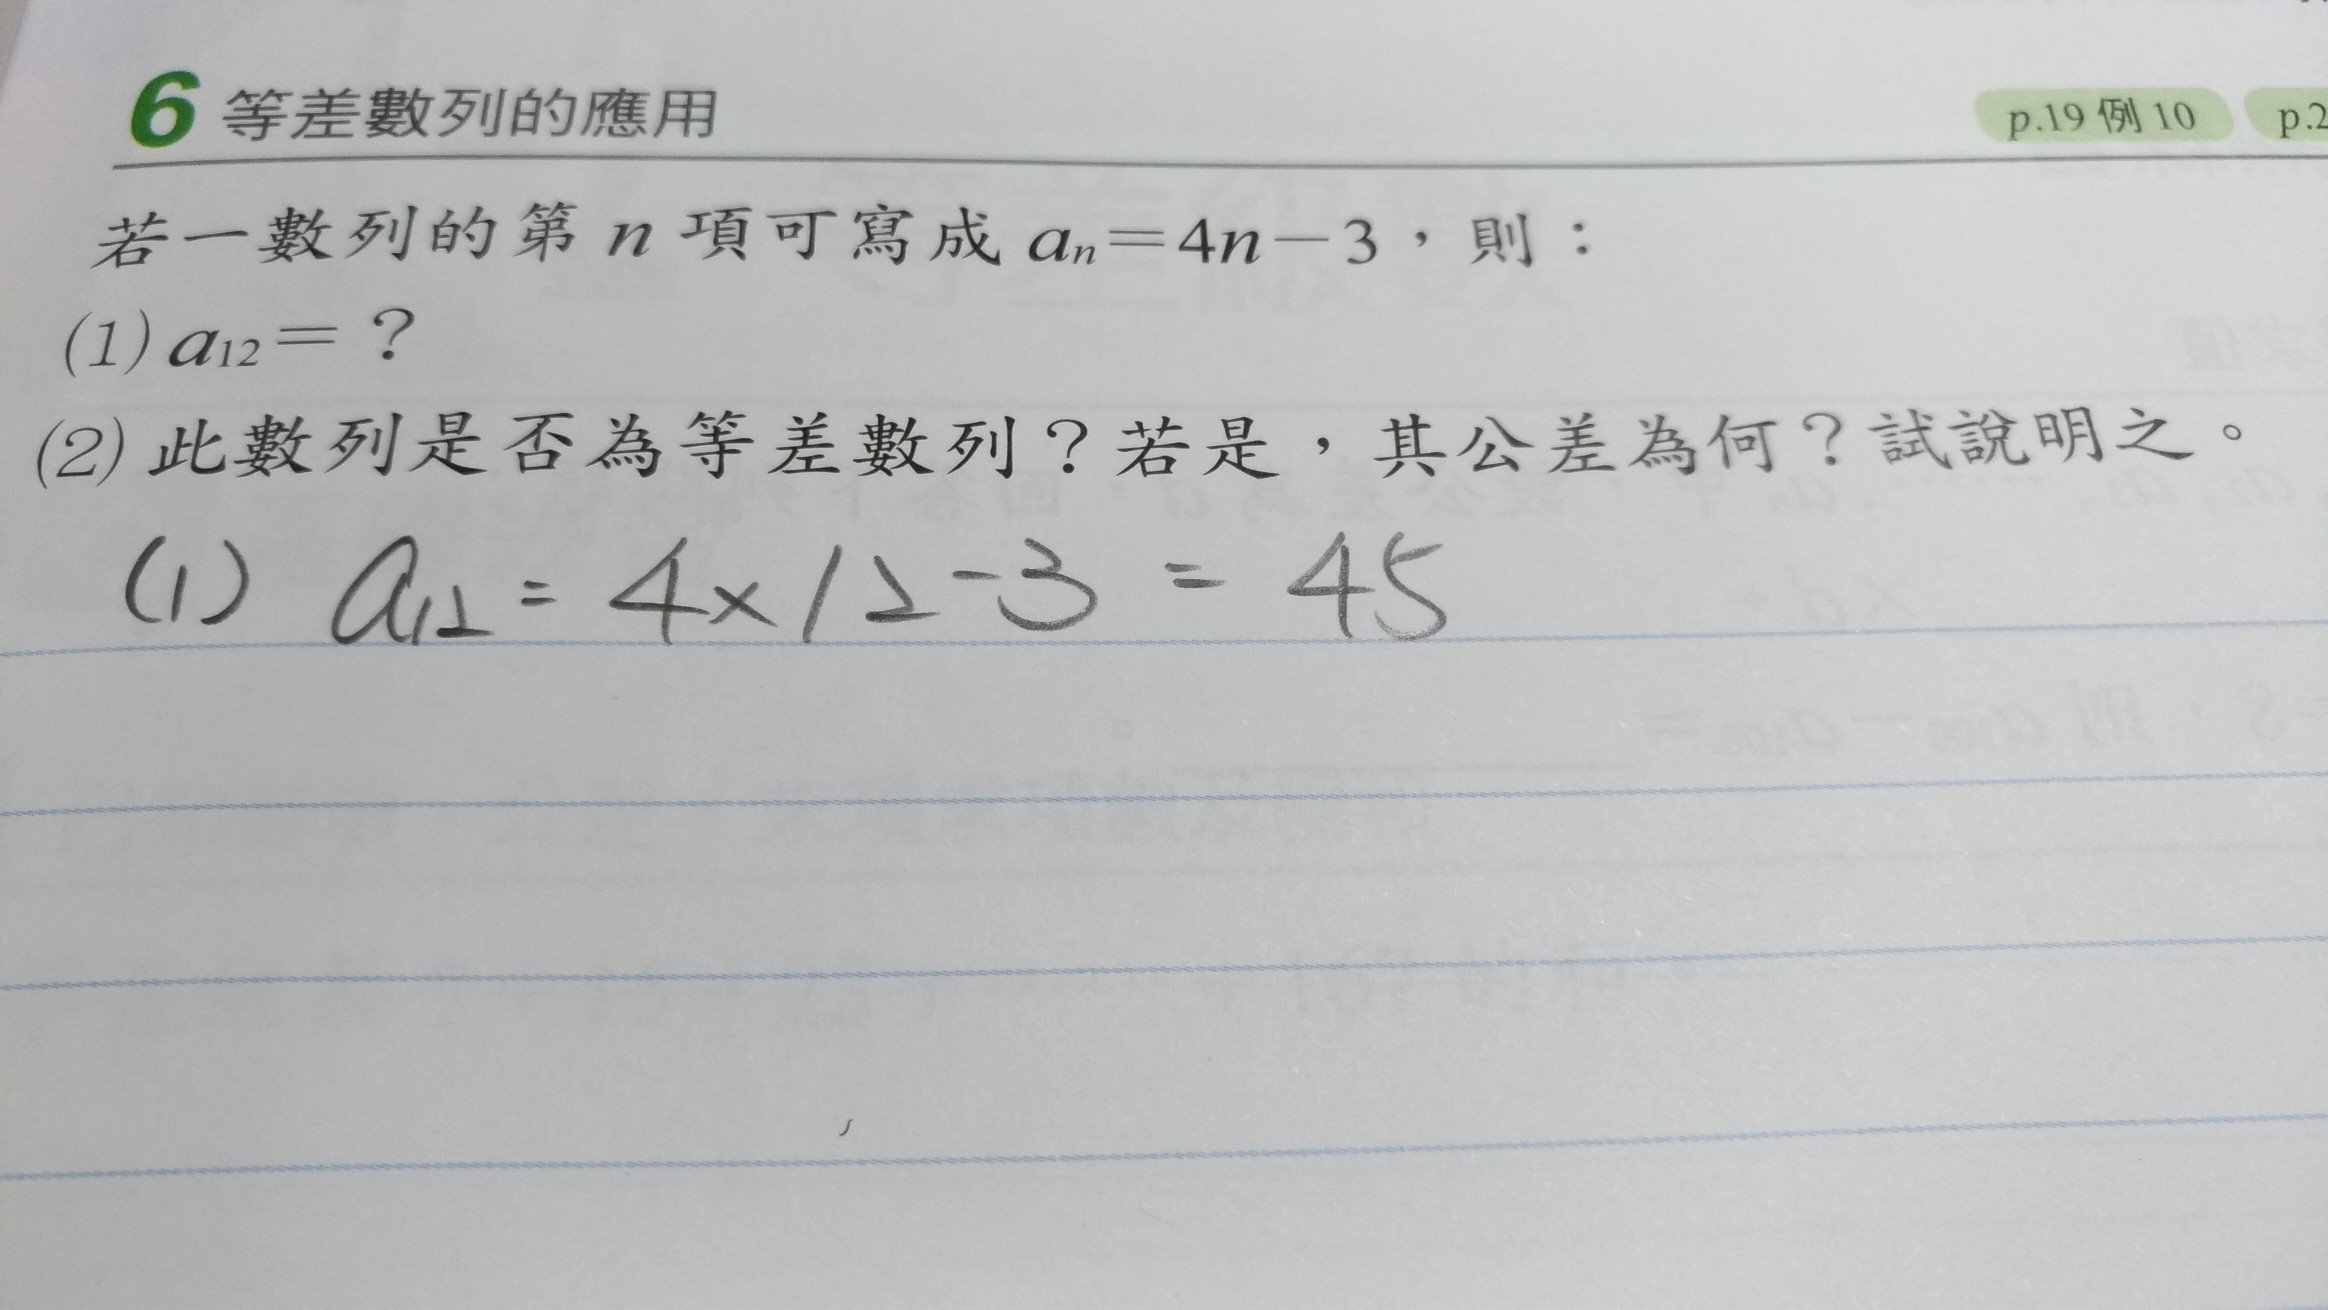 6 等差數列的應用 p.19 例 10 p.2
若一數列的第 n 項可寫成 aₙ＝4n－3，則：
(1) a₁₂＝？
(2) 此數列是否為等差數列？若是，其公差為何？試說明之。
(1) a₁₂ = 4×12-3 = 45